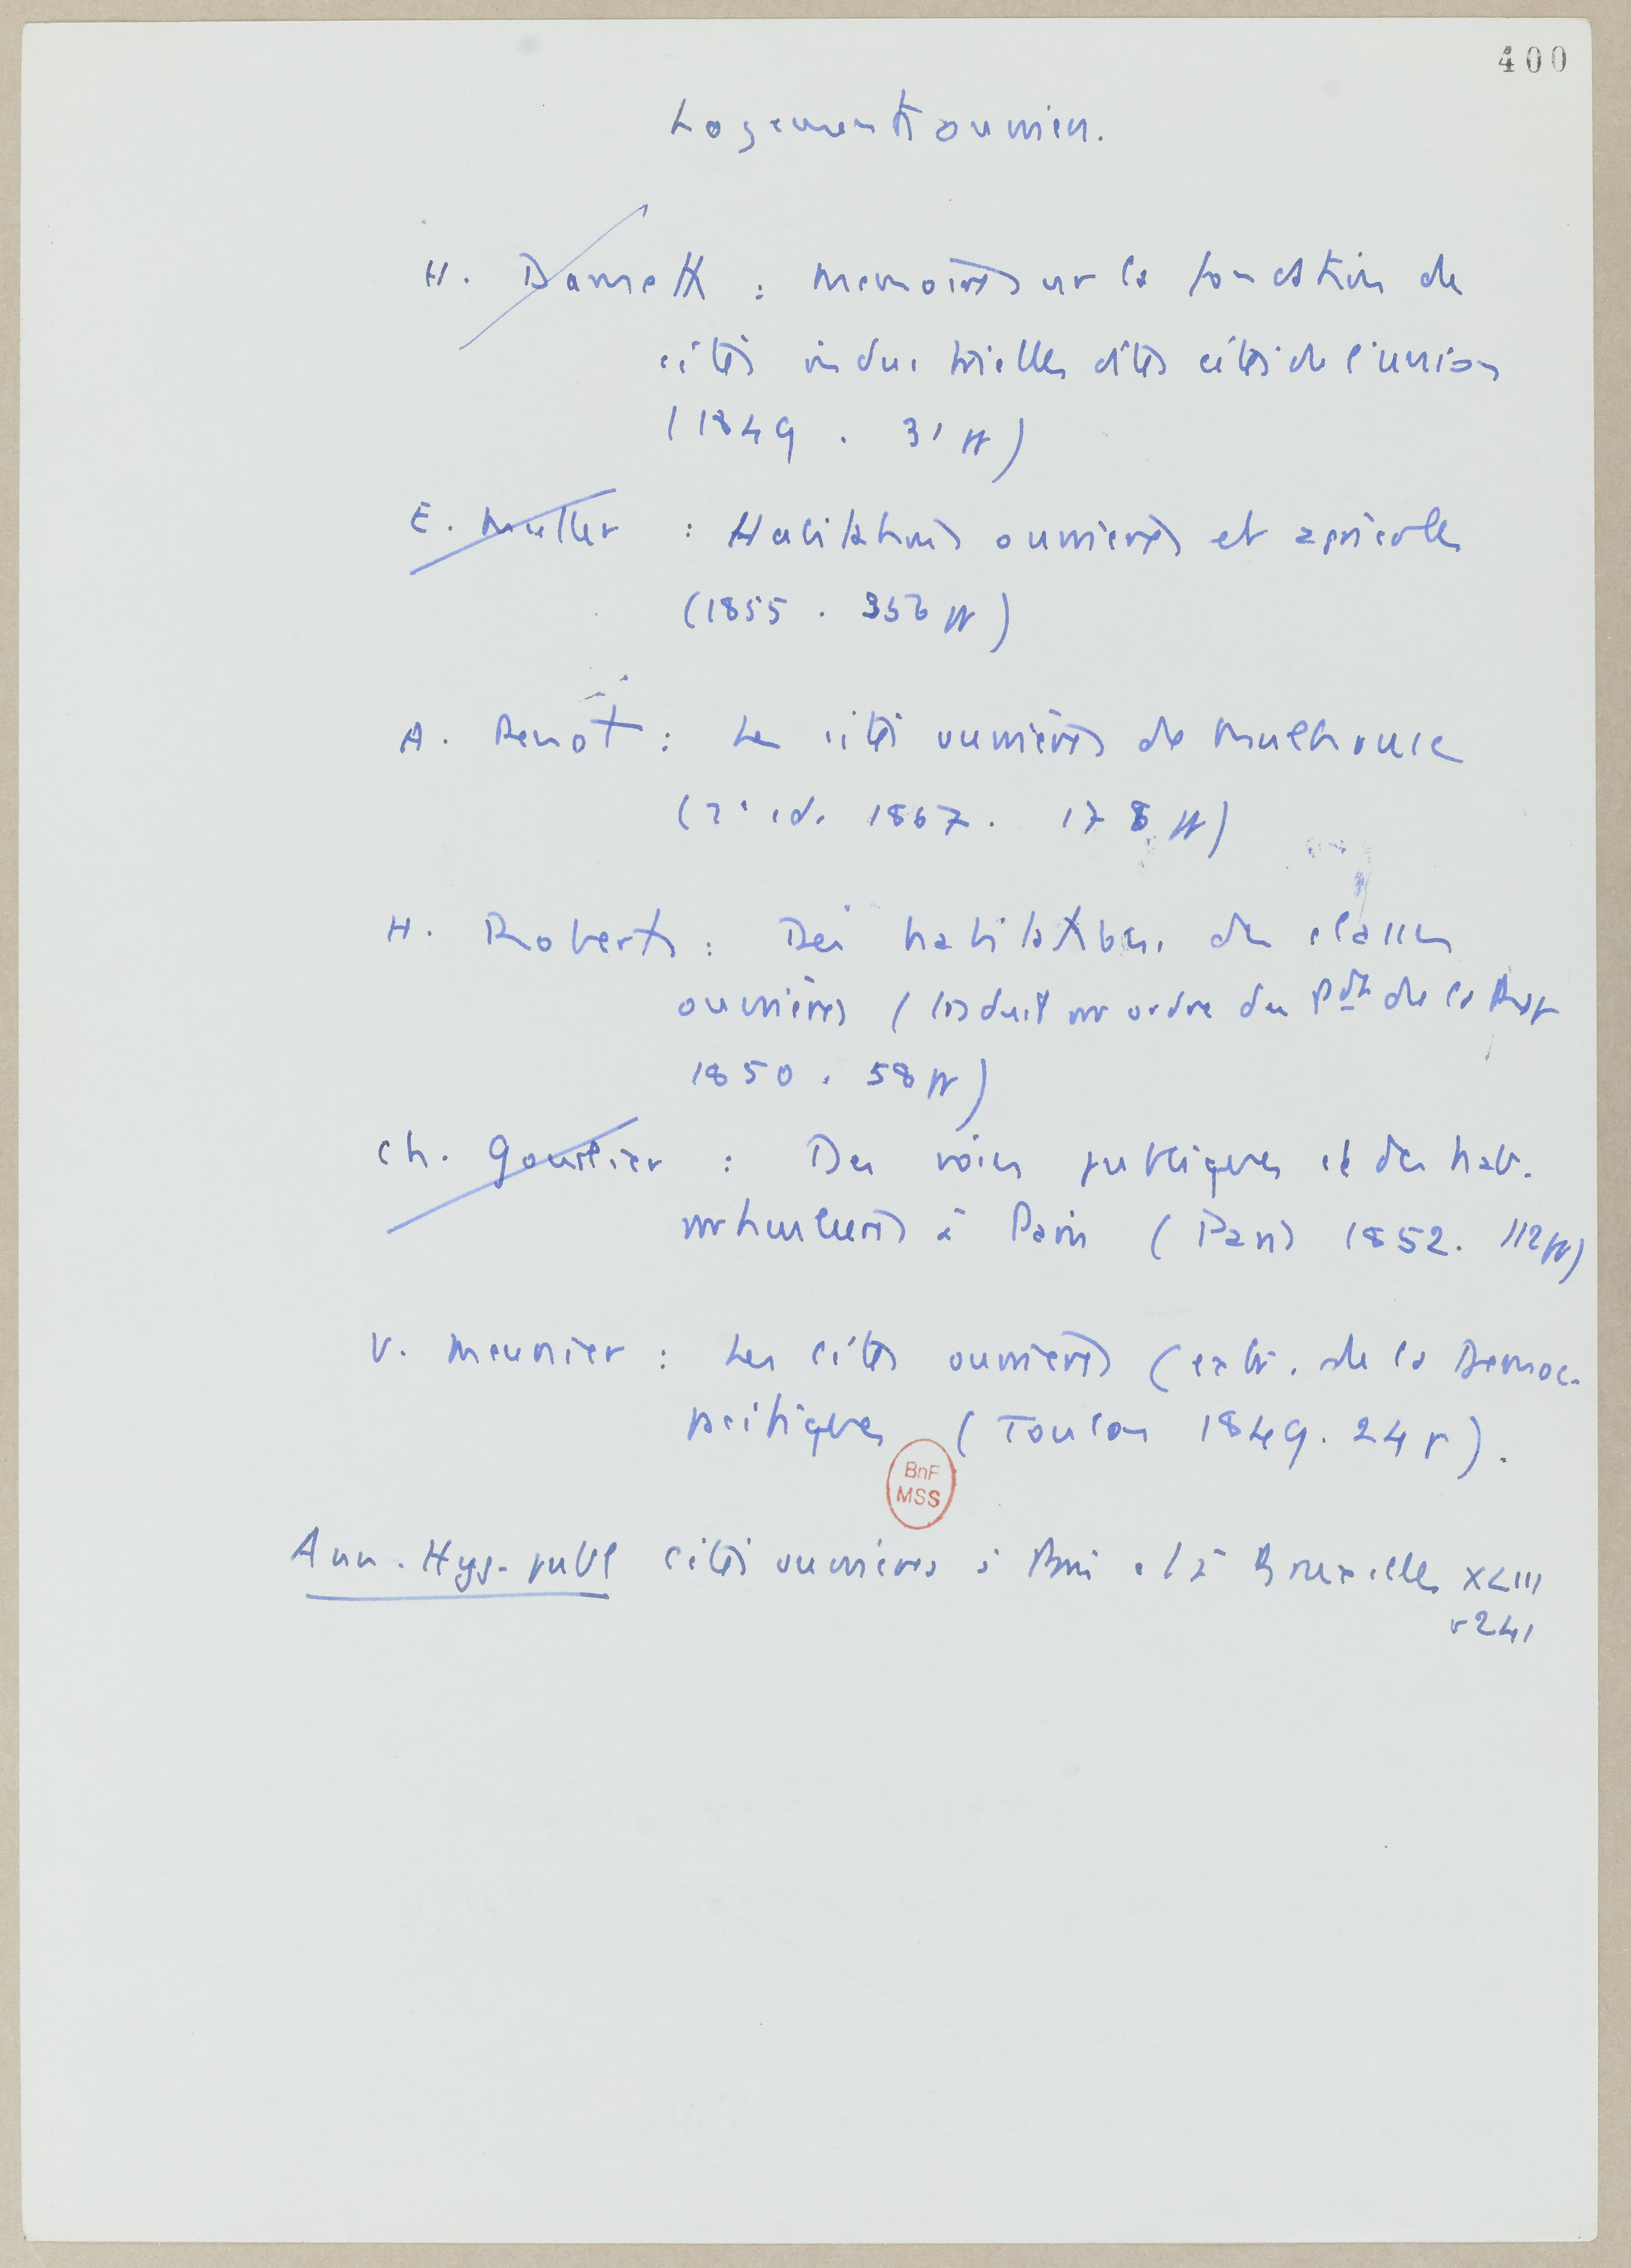 400
Logements ouvriers.
H. Dameth : Mémoire sur la fondation de
cités industrielles dites cités de l'union
(1849 . 31 pp)
E. Muller : Habitations ouvrières et agricoles
(1855 . 356 pp)
A. Penot : Les cités ouvrières de Mulhouse
(2e éd. 1867. 178 pp)
H. Roberts : Des habitations des classes
ouvrières (traduit par ordre du Pdt de la Rép
1850 . 58 pp)
Ch. Gourlier : Des voies publiques et des hab.
particulières à Paris (Paris 1852. 112 pp)
V. Meunier : Les cités ouvrières (extr. de la Democ.
pacifique (Toulon 1849. 24 p).
BnF
MSS
Ann. Hyg. publ Cités ouvrières à Paris et à Bruxelles XLIII
p 241